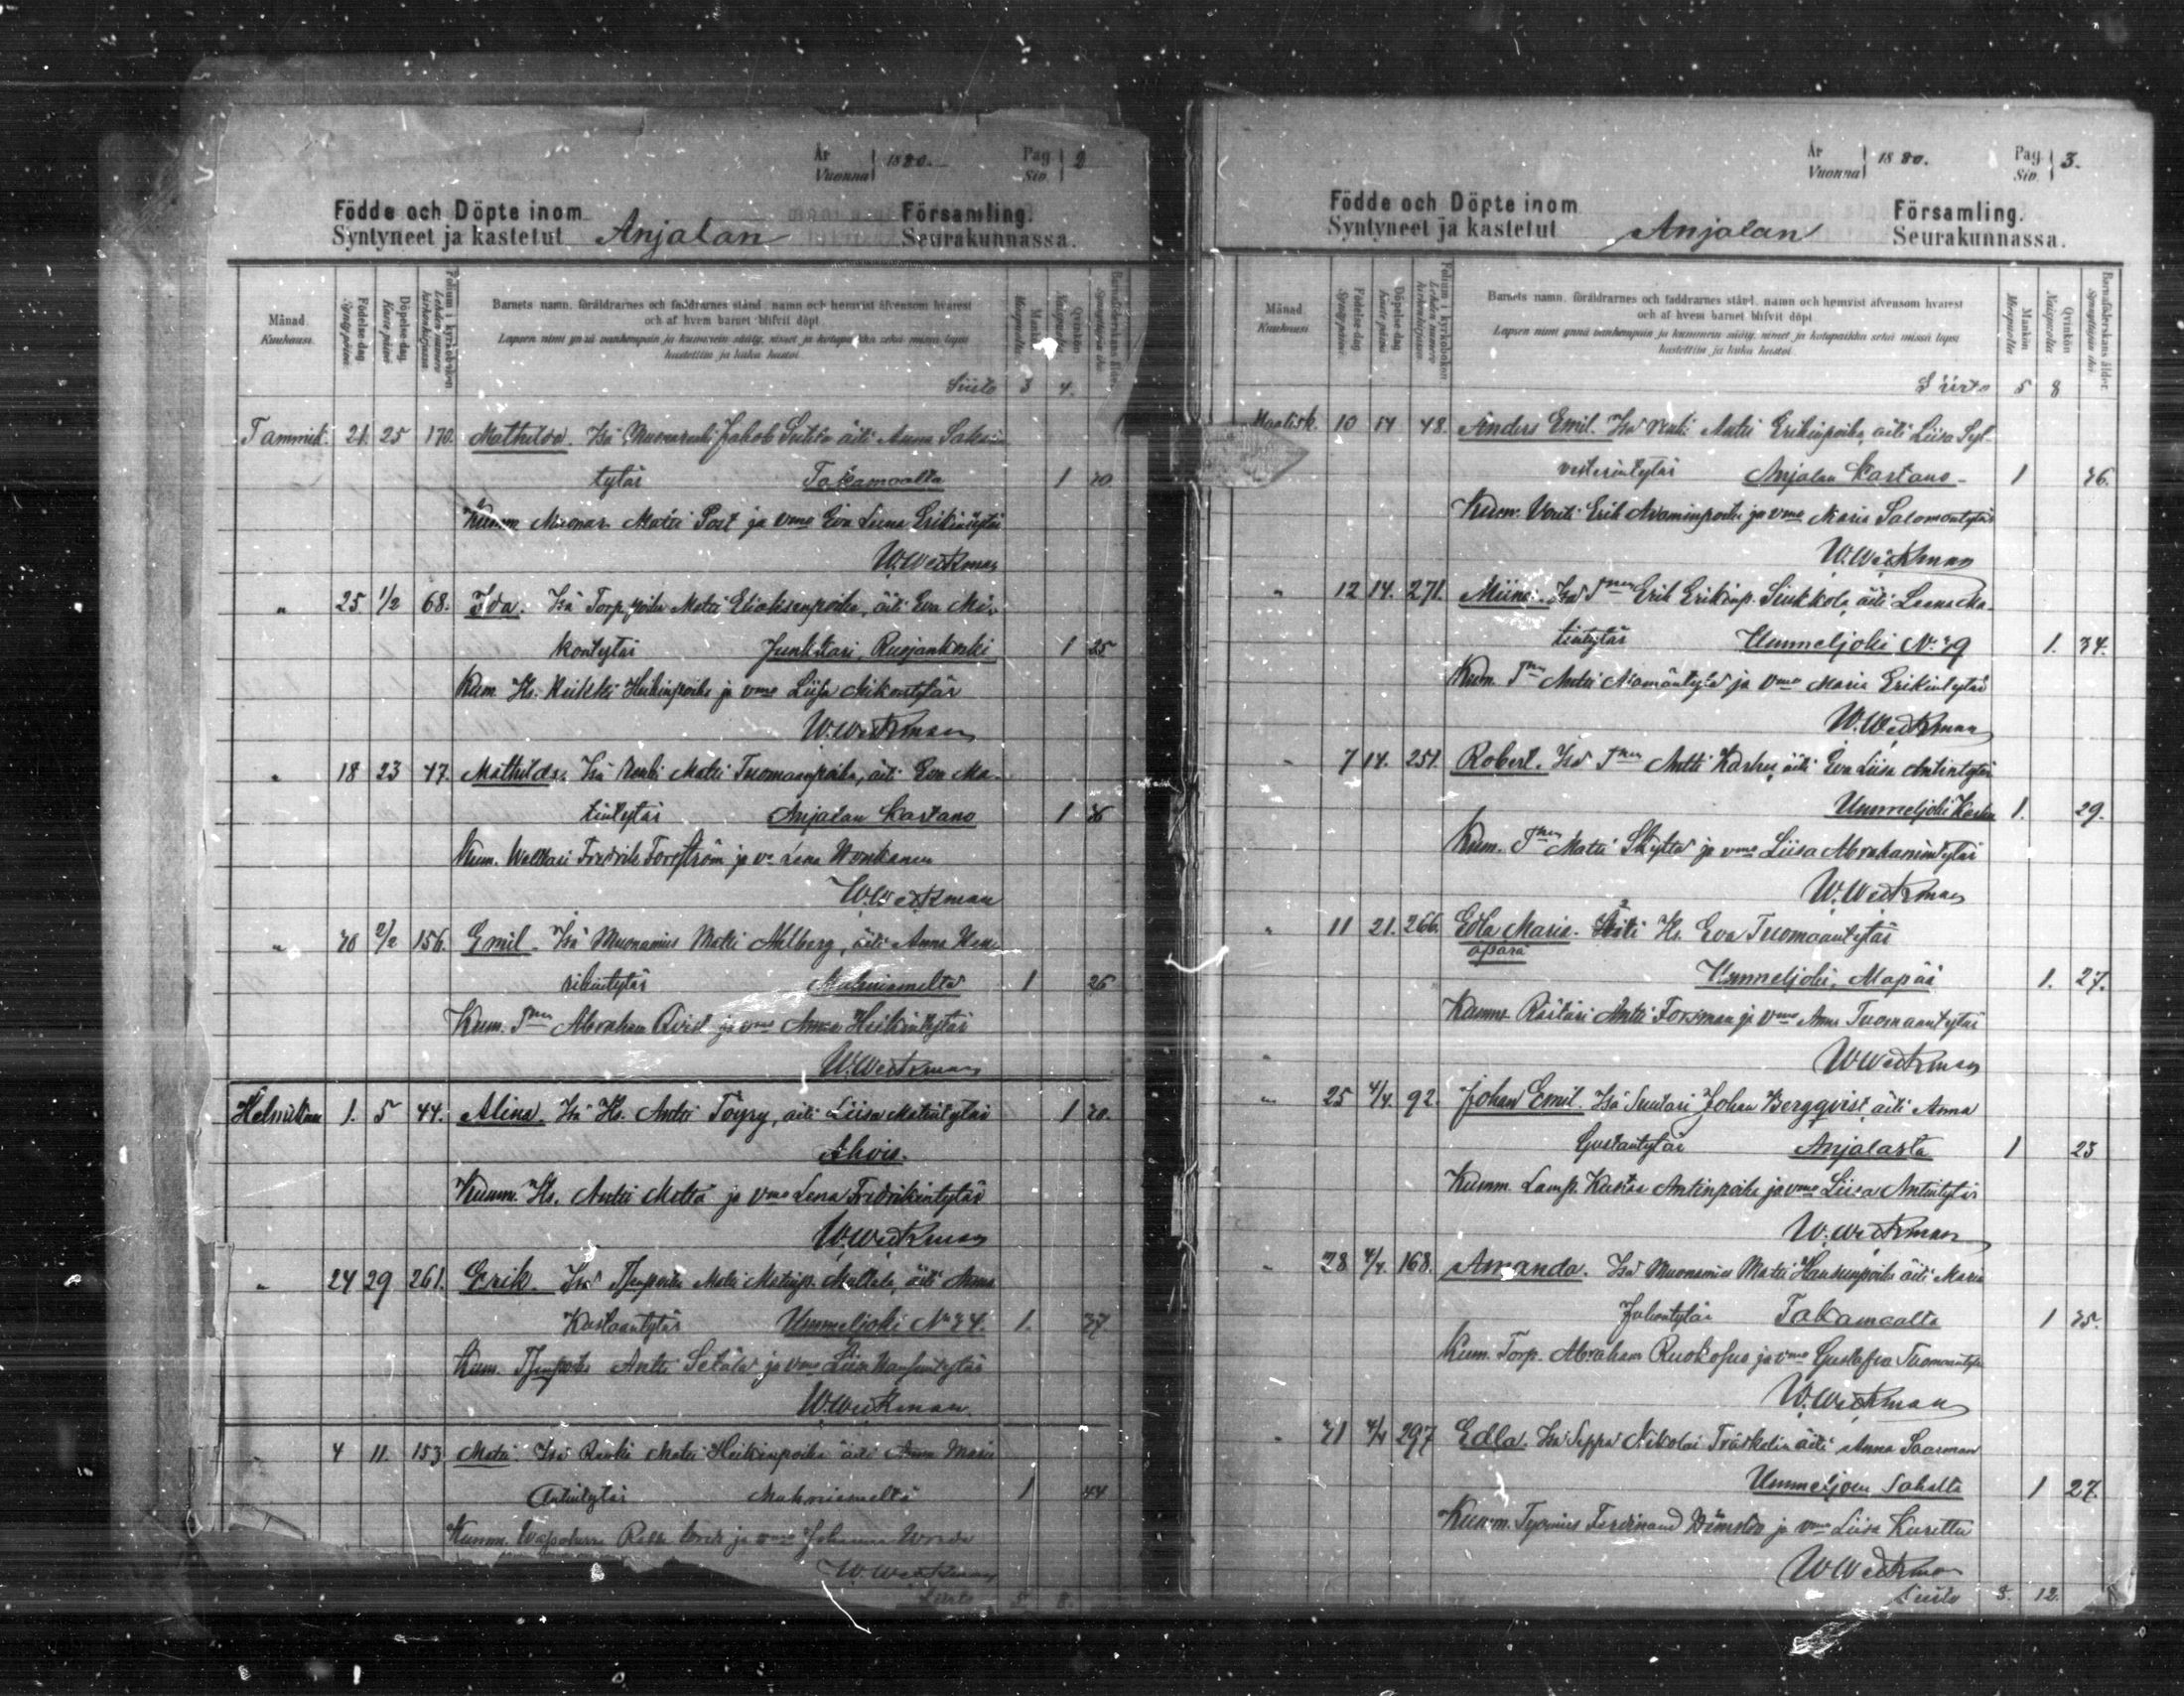 År
Vuonna 1880.
Pag
Siv. 2
Födde och Döpte inom Församling.
Syntyneet ja kastetut Anjalan Seurakunnassa.
Månad
Kuukausi.
Födelse-dag.
Synty-päivä
Döpelse-dag.
Kaste-päivä
Folium i kyrkoboken
Lehden numero kirkonkirjassa
Barnets namn, föräldrarnes och faddrarnes stånd, namn och hemvist äfvensom hvarest
och af hvem barnet blifvit döpt
Lapsen nimi ynnä vanhempain ja kummein sääty, nimet ja kotopaikka sekä missä lapsi
kastettiin ja kuka kastoi
Mankön
Miespuolta
Qvinkön
Naispuolta
Barnaföderskans ålder.
Synnyttäjän ikä
Siirto 3 4.
Tammik. 21. 25 170. Mathilda. Isä Jakob äiti Anna
tytär Takamaalta 1
Kumm. Matti Post ja vmo Eva Leena Erikintytär
W. Weckman
" 25 1/2 68. Ida. Isä Torp. poika Matti äiti Eva Mi-
kontytär Junkkari, 1 25
Kum. Hs. Heikki Heikinpoika ja vmo Liisa Mikontytär
W. Weckman
" 18 23 47. Mathilda. Isä Renki Matti Tuomaanpoika, äiti Eva Ma-
tintytär Anjalan Kartano 1
Kum. Fredrik Forsström ja vo Lena
W. Weckman
" 30 2/2 156. Emil. Isä Muonamies Matti Ahlberg, äiti Anna Hen-
rikintytär 1 26
Kum. Abraham Qvist ja vmo Anna Heikintytär
W. Weckman
Helmikuu 1. 5 44. Alina. Isä Hs. Antti Töyry, äiti Liisa Matintytär 1
Ahvis.
Kumm. Hs. Antti Mettä ja vmo Lena Fredrikintytär
W. Weckman
" 24 29 261. Erik. Isä Matti Matinp. Mattala, äiti Anna
Kustaantytär Ummeljoki No 34. 1. 37.
Kum. Antti Setälä ja vmo Liisa
W. Weckman
" 4 11. 153. Matti. Isä Renki Matti Heikinpoika äiti Anna Maria
Antintytär 1 44
Kumm. ja vmo Johanna
W. Weckman
Siirto 5 8.
År
Vuonna 1880.
Pag
Siv. 3.
Födde och Döpte inom Församling.
Syntyneet ja kastetut Anjalan Seurakunnassa.
Månad
Kuukausi
Födelse-dag
Synty-päivä
Döpelse-dag
Kaste-päivä
Folium i kyrkoboken
Lehden numero kirkonkirjassa
Barnets namn, föräldrarnes och faddrarnes stånd, namn och hemvist äfvensom hvarest
och af hvem barnet blifvit döpt
Lapsen nimi ynnä vanhempain ja kummein sääty, nimet ja kotopaikka sekä missä lapsi
kastettiin ja kuka kastoi
Mankön
Miespuolta
Qvinkön
Naispuolta
Barnaföderskans ålder.
Synnyttäjän ikä
Siirto 5 8
Maalisk. 10 14 48. Anders Emil. Isä Renki Matti Erikinpoika, äiti Liisa Syl-
vesterintytär Anjalan Kartano 1 36.
Kum. Erik Adaminpoika ja vmo Maria Salomontytär
W. Weckman
" 12 14. 271. Miina. Isä Erik Erikinp. Sinkkola äiti Leena Ma-
tintytär Ummeljoki No. 39 1. 34.
Kum. Matti ja vmo Maria Erikintytär
W. Weckman
" 7 14. 251. Robert. Isä Antti Karhu, äiti Eva Liisa Antintytär
Ummeljoki Karhu 1. 29.
Kum. Matti Skyttä ja vmo Liisa Abrahamintytär
W. Weckman
" 11 21. 266. Edla Maria. Äiti Hs. Eva Tuomaantytär
äpärä
Ummeljoki, Alapää 1. 27.
Kumm. Räätäri Antti Forsman ja vmo Anna Tuomaantytär
" W. Weckman
" 25 4/4 92. Johan Emil. Isä Suutari Johan Bergqvist äiti Anna
Gustantytär Anjalasta 1 23
Kumm. Lamp. Kustaa Antinpoika ja vmo Liisa Antintytär
W. Weckman
" 28 4/4 168. Amanda. Isä Muonamies Matti äiti Maria
Juhontytär Takamaalta 1 35.
Kum. Torp. Abraham ja vmo Gustafva
W. Weckman
" 31 4/4 297 Edla. Isä Seppä Nikolai Träskelin äiti Anna Saarman
Ummeljoen Sahalta 1 27.
Kumm. Työmies Ferdinand ja vmo Liisa Kurittu
W. Weckman
Siirto 8. 12.